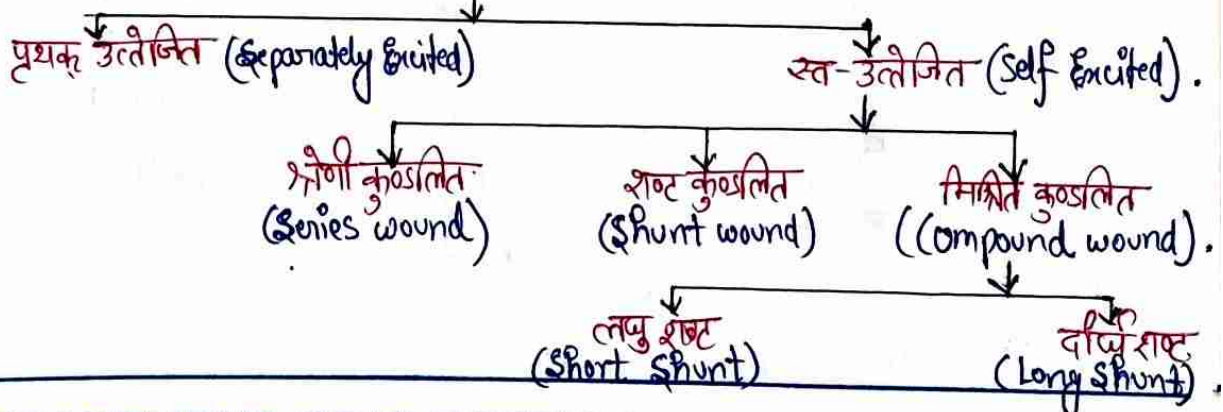 पृथक् उत्तेजित (Separately Excited)
स्व-उत्तेजित (Self Excited).
श्रेणी कुण्डलित
(Series wound)
शण्ट कुण्डलित
(Shunt wound)
मिश्रित कुण्डलित
(Compound wound).
लघु शण्ट
(Short Shunt)
दीर्घ शण्ट
(Long Shunt)